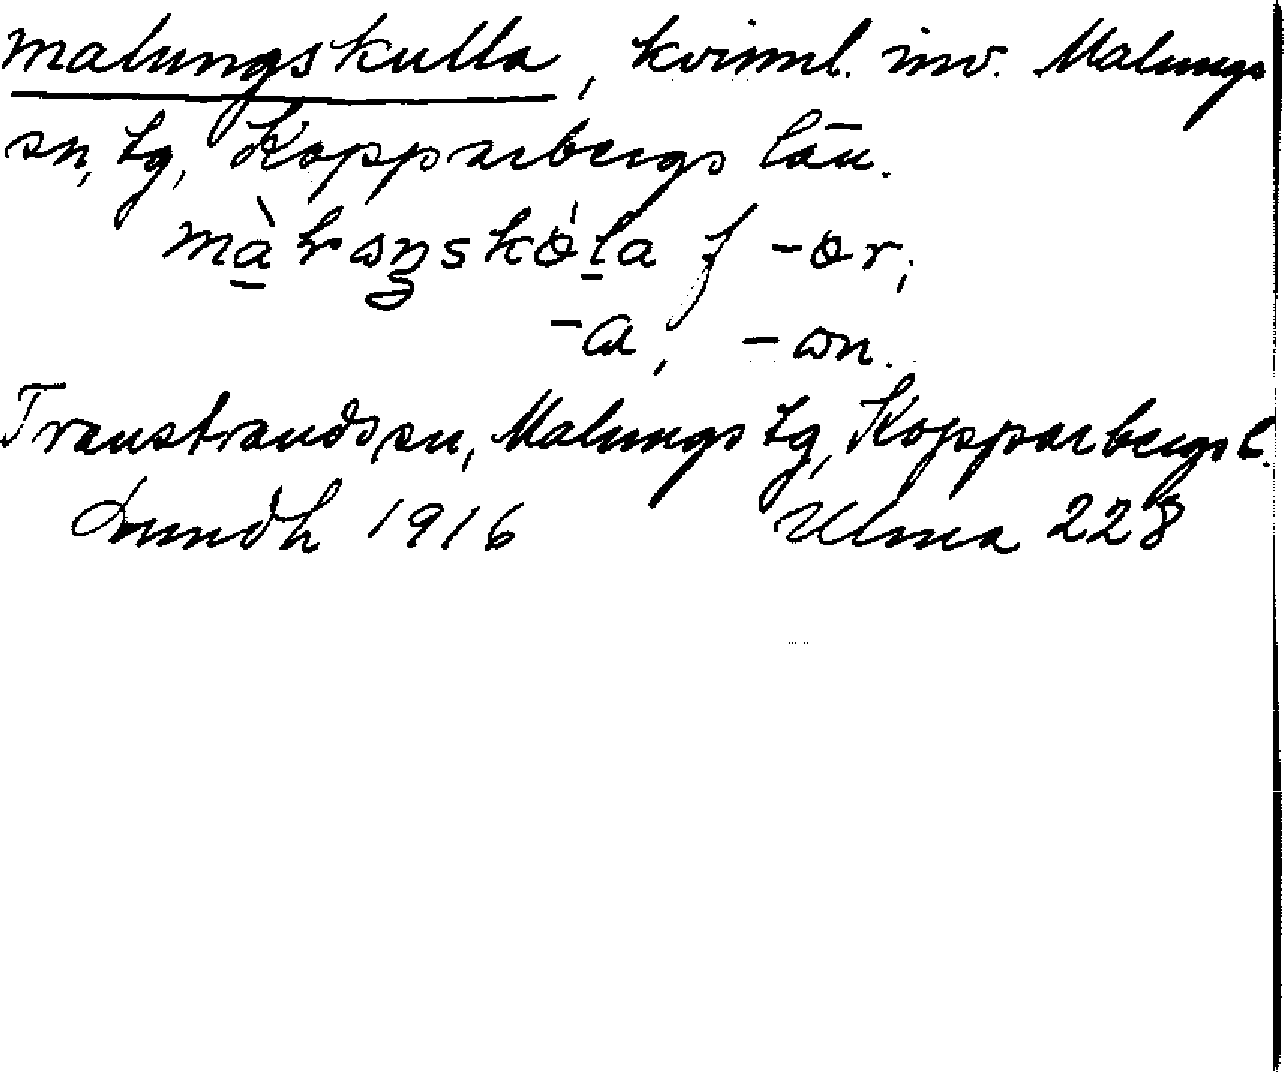 malungskulla, kvinnl. inv. Malungs
sn, tg, Kopparbergs län.
f -ər,
-a, -ωn.
Transtrands sn, Malungs tg, Kopparbergs l.
Lundh 1916 Ulma 228